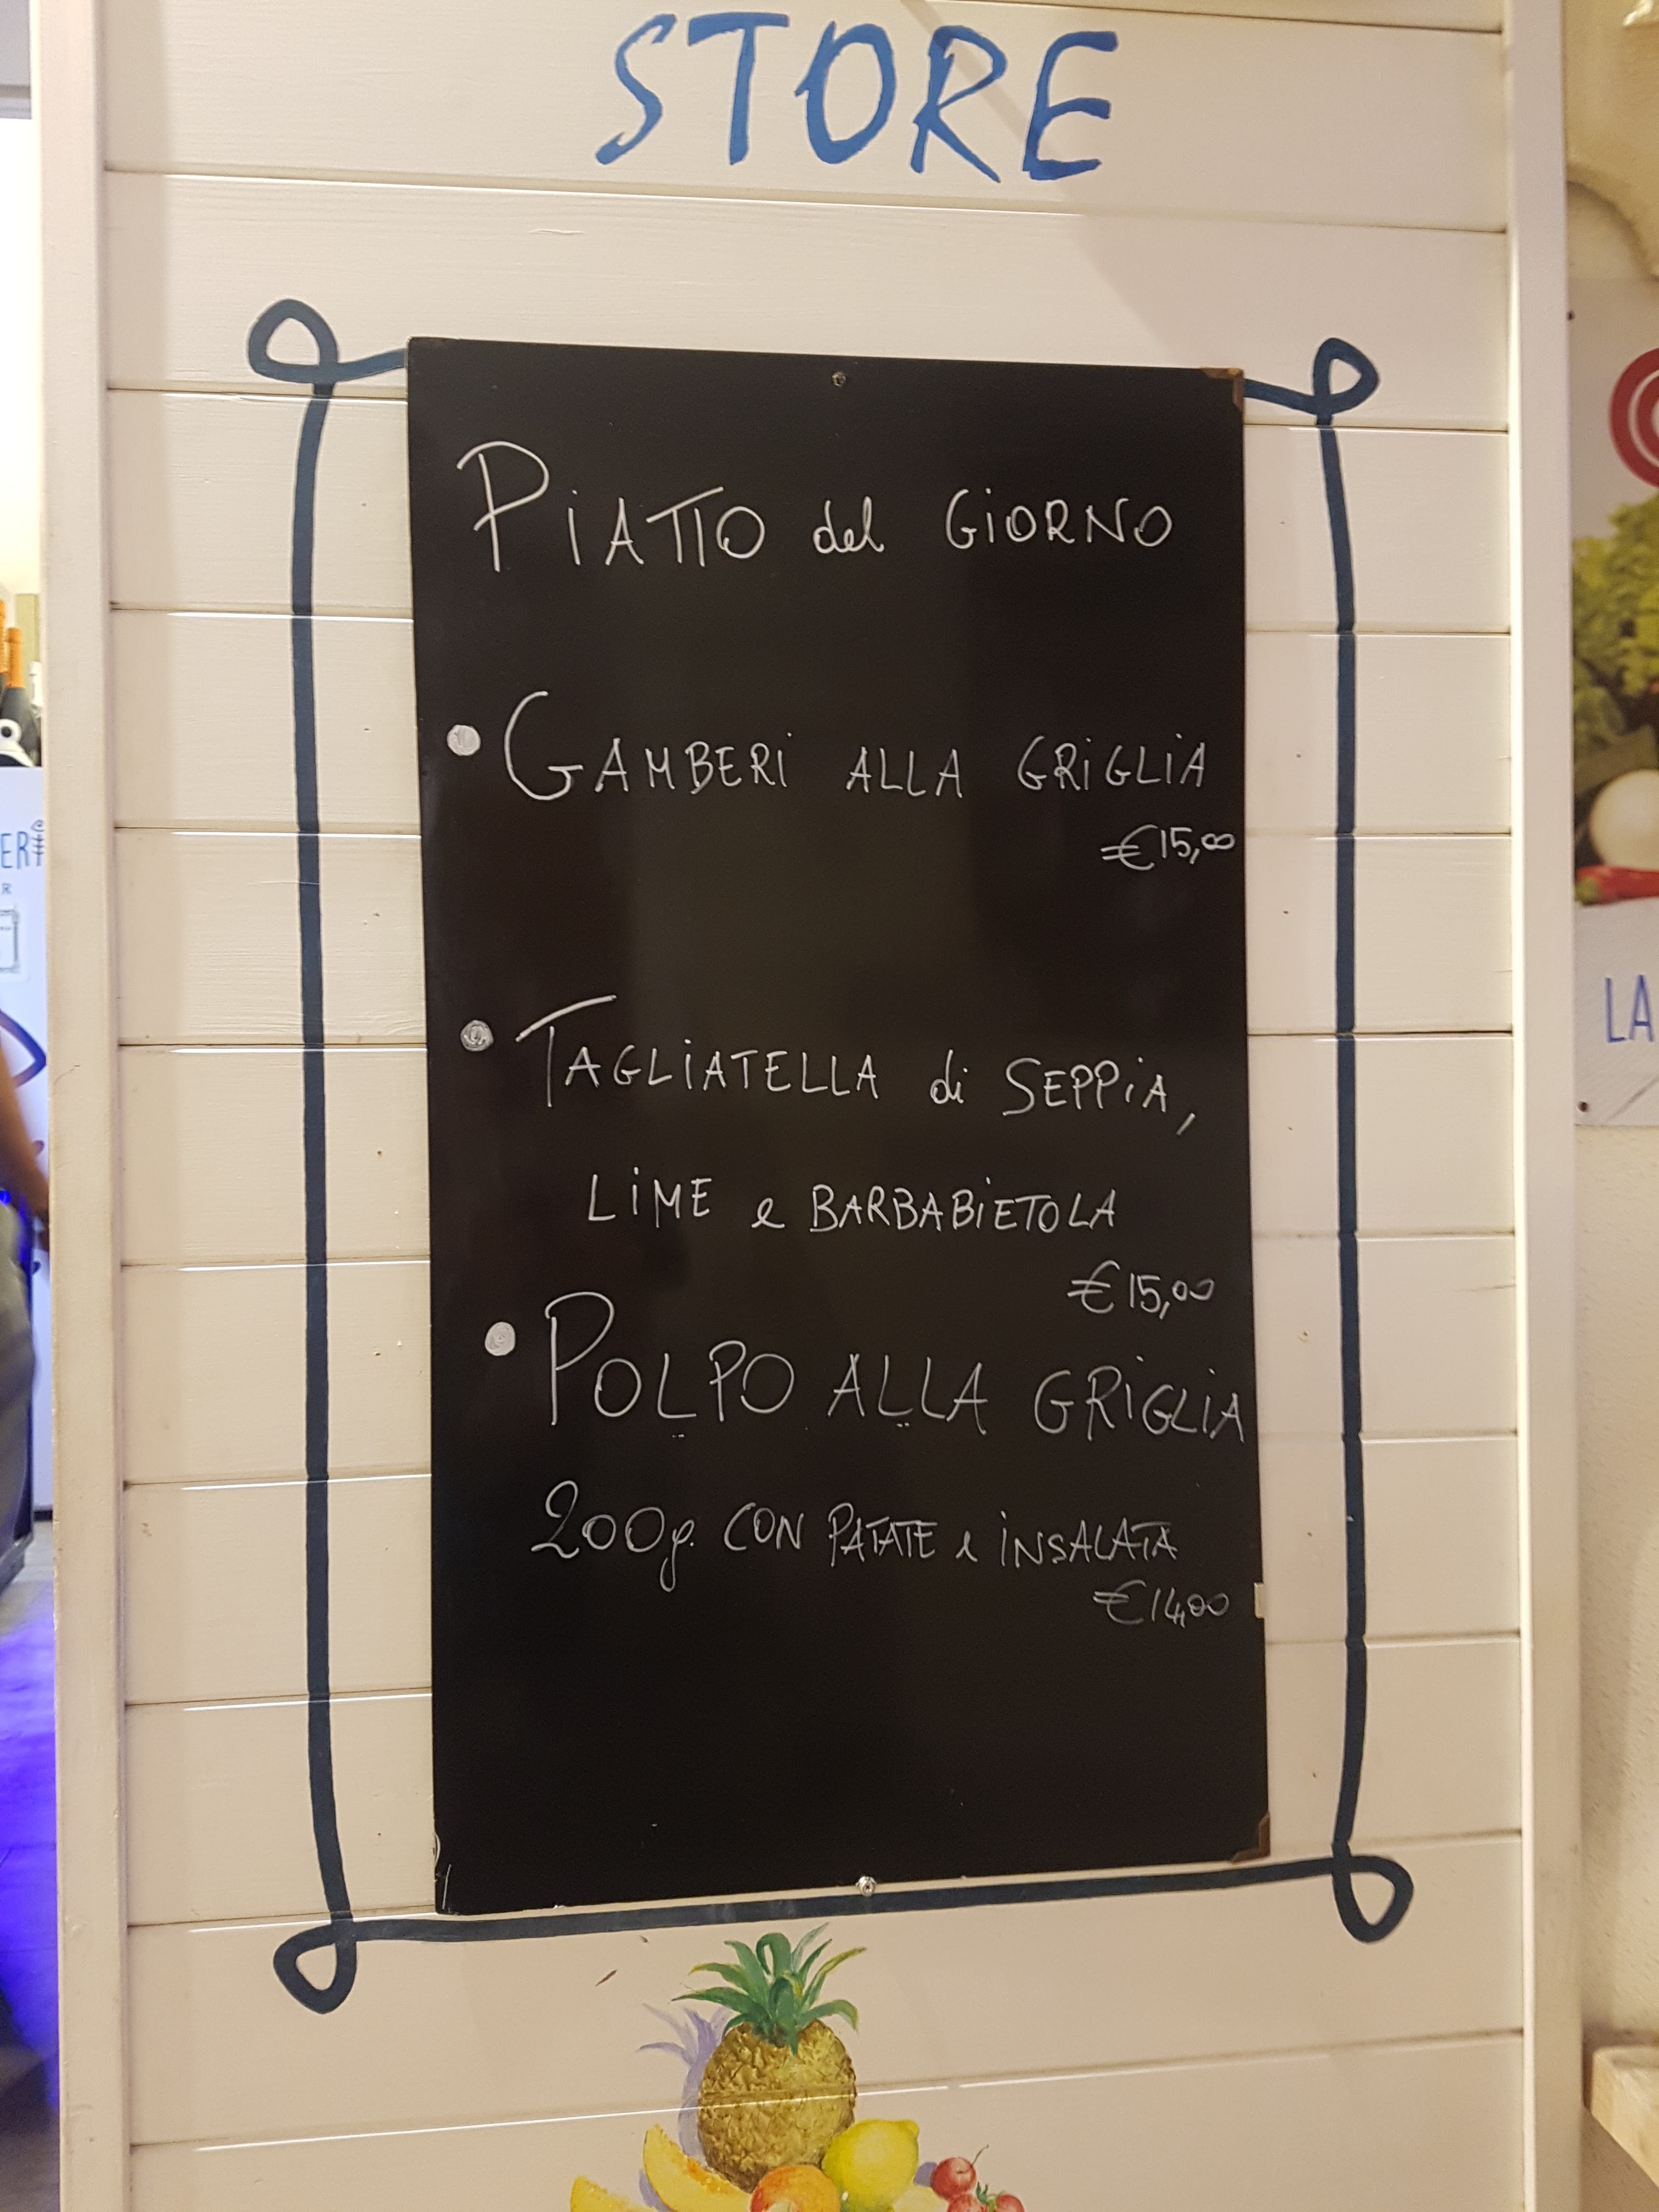 STORE
PiATTO del GiORNO
GAMBERi ALLA GRiGLiA
€15,00
TAGLiATELLA di SEPPiA,
LiME e BARBABiETOLA
€15,00
POLPO ALLA GRiGLiA
200g. CON PATATE e iNSALATA
€14,00
ER
R
LA